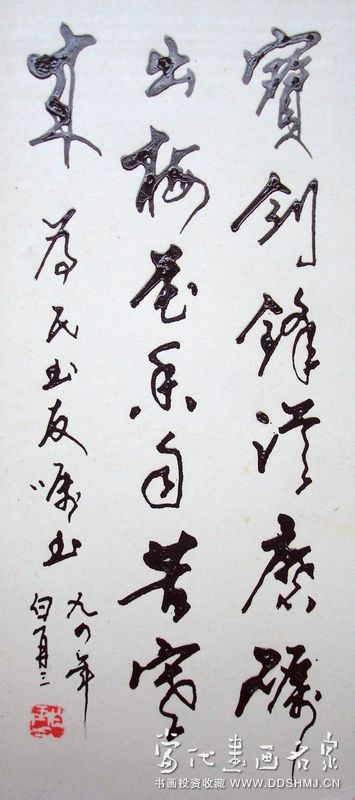 寶劍鋒從磨礪
出梅花香自苦寒
来 為民书友嘱书
九四年
當代書画名家
书画投资收藏 WWW.DDSHMJ.CN